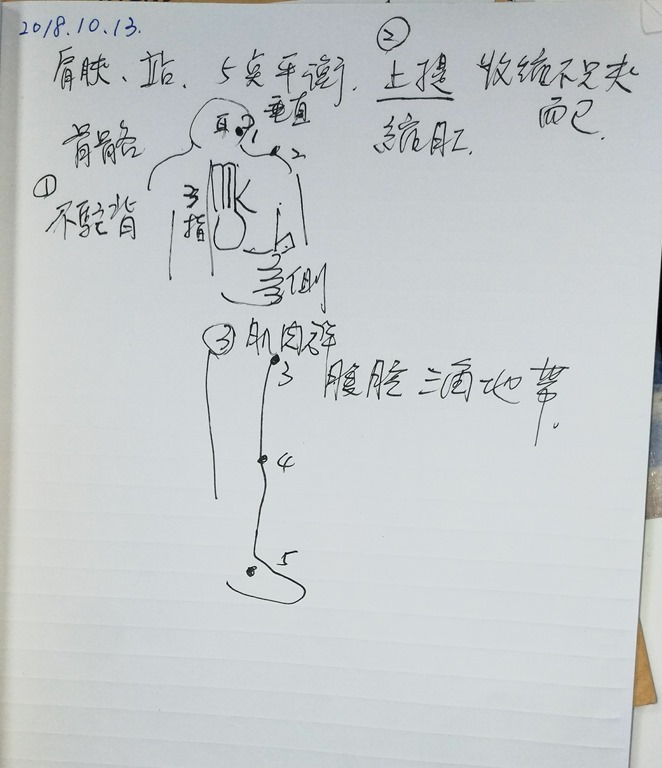 2018.10.13.
肩胛、站、5点平衡.
② 上提 收缩不只夹
而已.
缩肛.
垂直
耳 1
2
骨骼
① 不驼背
3指
③ 肌肉群
3
腹腔三角地带.
4
5